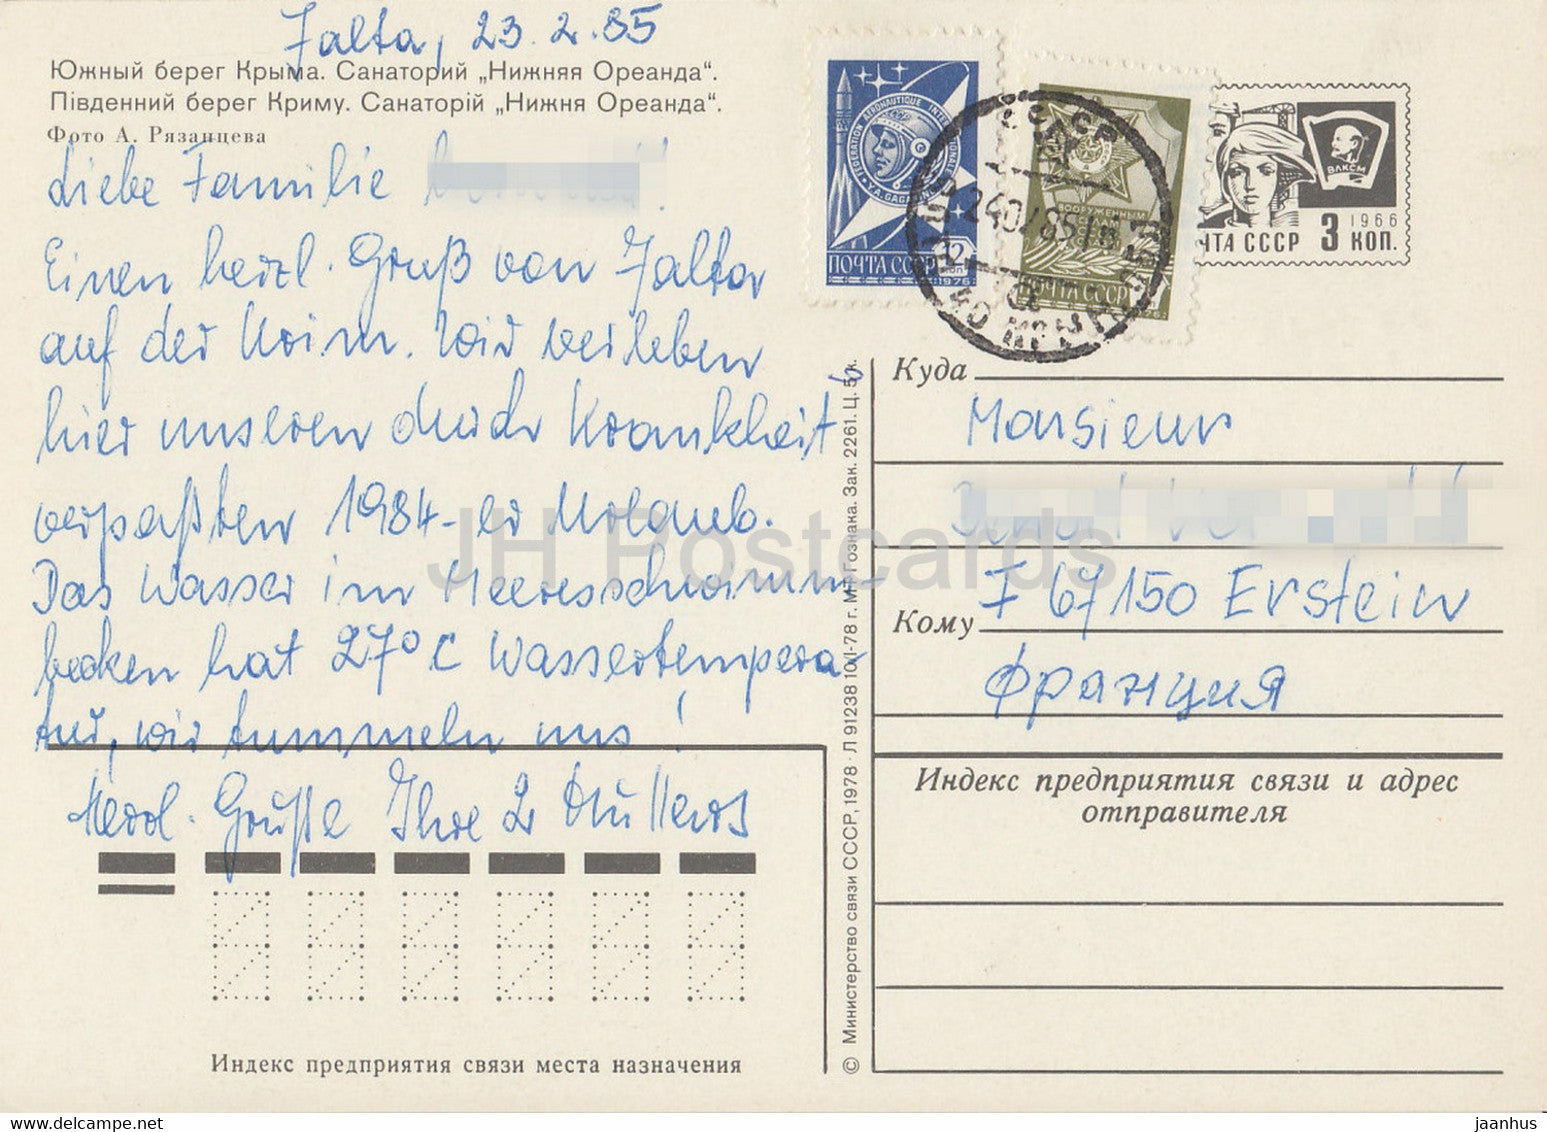 Jalta, 23.2.85
Южный берег Крыма. Санаторий „Нижняя Ореанда“.
Південний берег Криму. Санаторій „Нижня Ореанда“.
Фото А. Рязанцева
Liebe Familie
Einen herzl. Gruß von Jalta
auf der Krim. Wir verleben
hier unseren durch Krankheit
verpaßten 1984-er Urlaub.
Das Wasser im Meeresschwimm-
becken hat 27°C Wassertempera-
tur, wir tummeln uns!
Herzl. Grüße Ihre 2 Müllers
Индекс предприятия связи места назначения
© Министерство связи СССР, 1978 · Л 91238 10/I-78 г. МПФ Гознака. Зак. 2261. Ц. 5 к.
ПОЧТА СССР
1976
ВООРУЖЕННЫМ
ПОЧТА СССР
ВЛКСМ
1966
ПОЧТА СССР 3 КОП.
Куда
Monsieur
F 67150 Erstein
Кому
Франция
Индекс предприятия связи и адрес
отправителя
JH Postcards
jaanhus